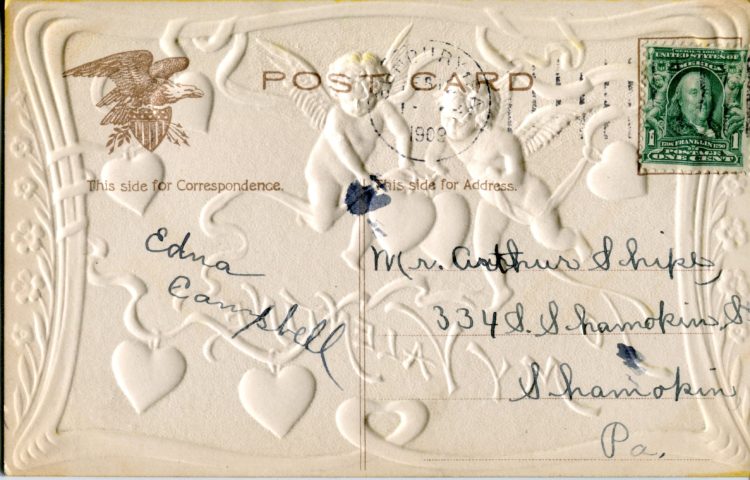 POST CARD
1909
SERIES 1902
UNITED STATES OF
AMERICA
1706 FRANKLIN 1790
1 POSTAGE 1
ONE CENT
This side for Correspondence.
This side for Address.
Edna
Campbell
Mr. Arthur Shipe,
334 S. Shamokin St
Shamokin
Pa.